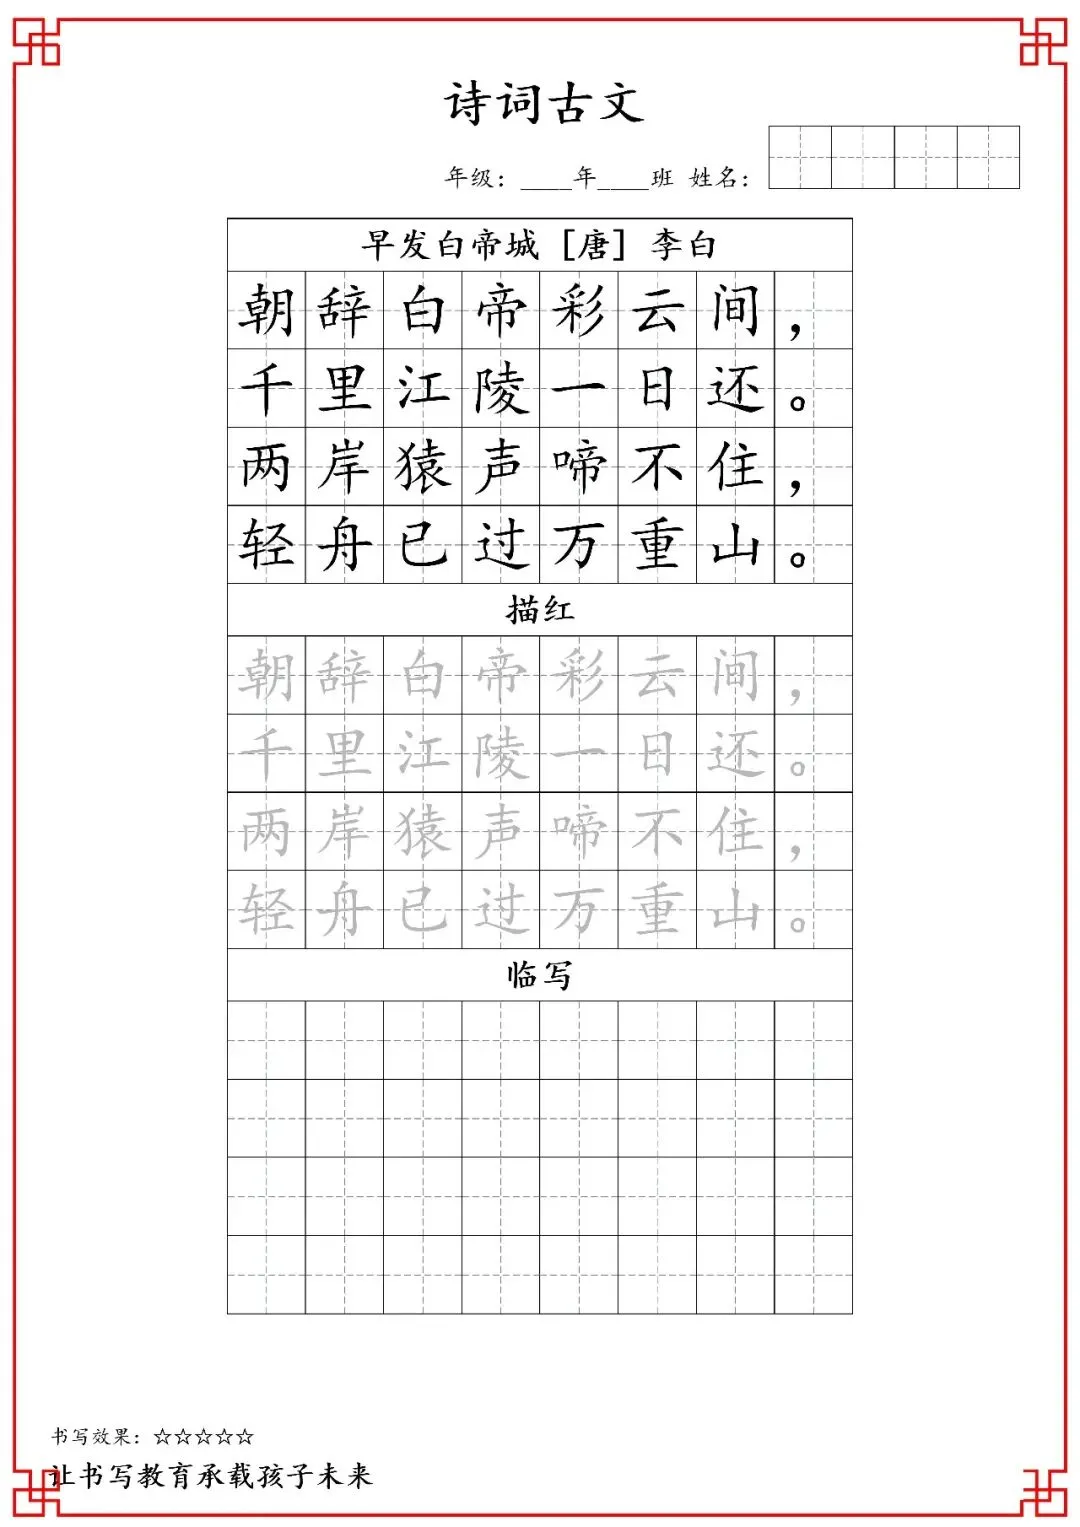 诗词古文
年级：____年____班 姓名：
早发白帝城 [唐] 李白
朝辞白帝彩云间，
千里江陵一日还。
两岸猿声啼不住，
轻舟已过万重山。
描红
朝辞白帝彩云间，
千里江陵一日还。
两岸猿声啼不住，
轻舟已过万重山。
临写
书写效果：☆☆☆☆☆
让书写教育承载孩子未来